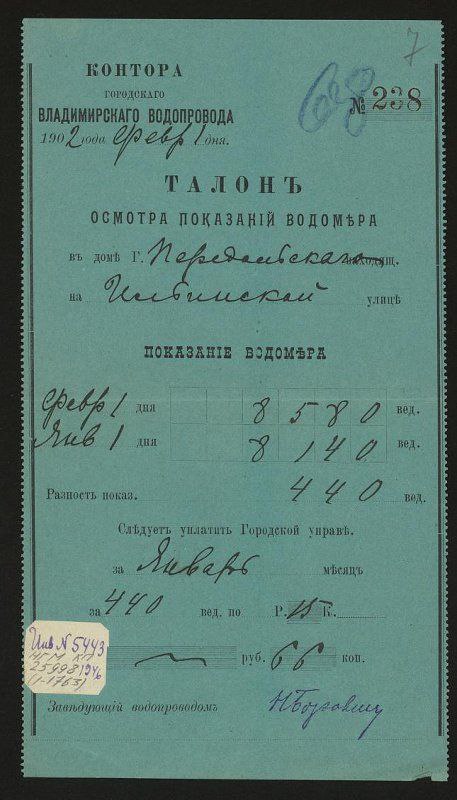 7
КОНТОРА
ГОРОДСКАГО
ВЛАДИМИРСКАГО ВОДОПРОВОДА
68 № 238
1902 года Февр 1 дня.
ТАЛОНЪ
ОСМОТРА ПОКАЗАНІЙ ВОДОМѢРА
въ домѣ Г. Передольскаго находящ.
на Ильинской улицѣ
ПОКАЗАНІЕ ВОДОМѢРА
Февр 1 дня 8 580 вед.
Янв 1 дня 8 140 вед.
Разность показ. 440 вед.
Слѣдуетъ уплатить Городской управѣ.
за Январь мѣсяцъ
за 440 вед. по Р. 15 К.
руб. 66 коп.
Инв N 5443
НГМ КП
25998 1946
(1-1763)
Завѣдующій водопроводомъ